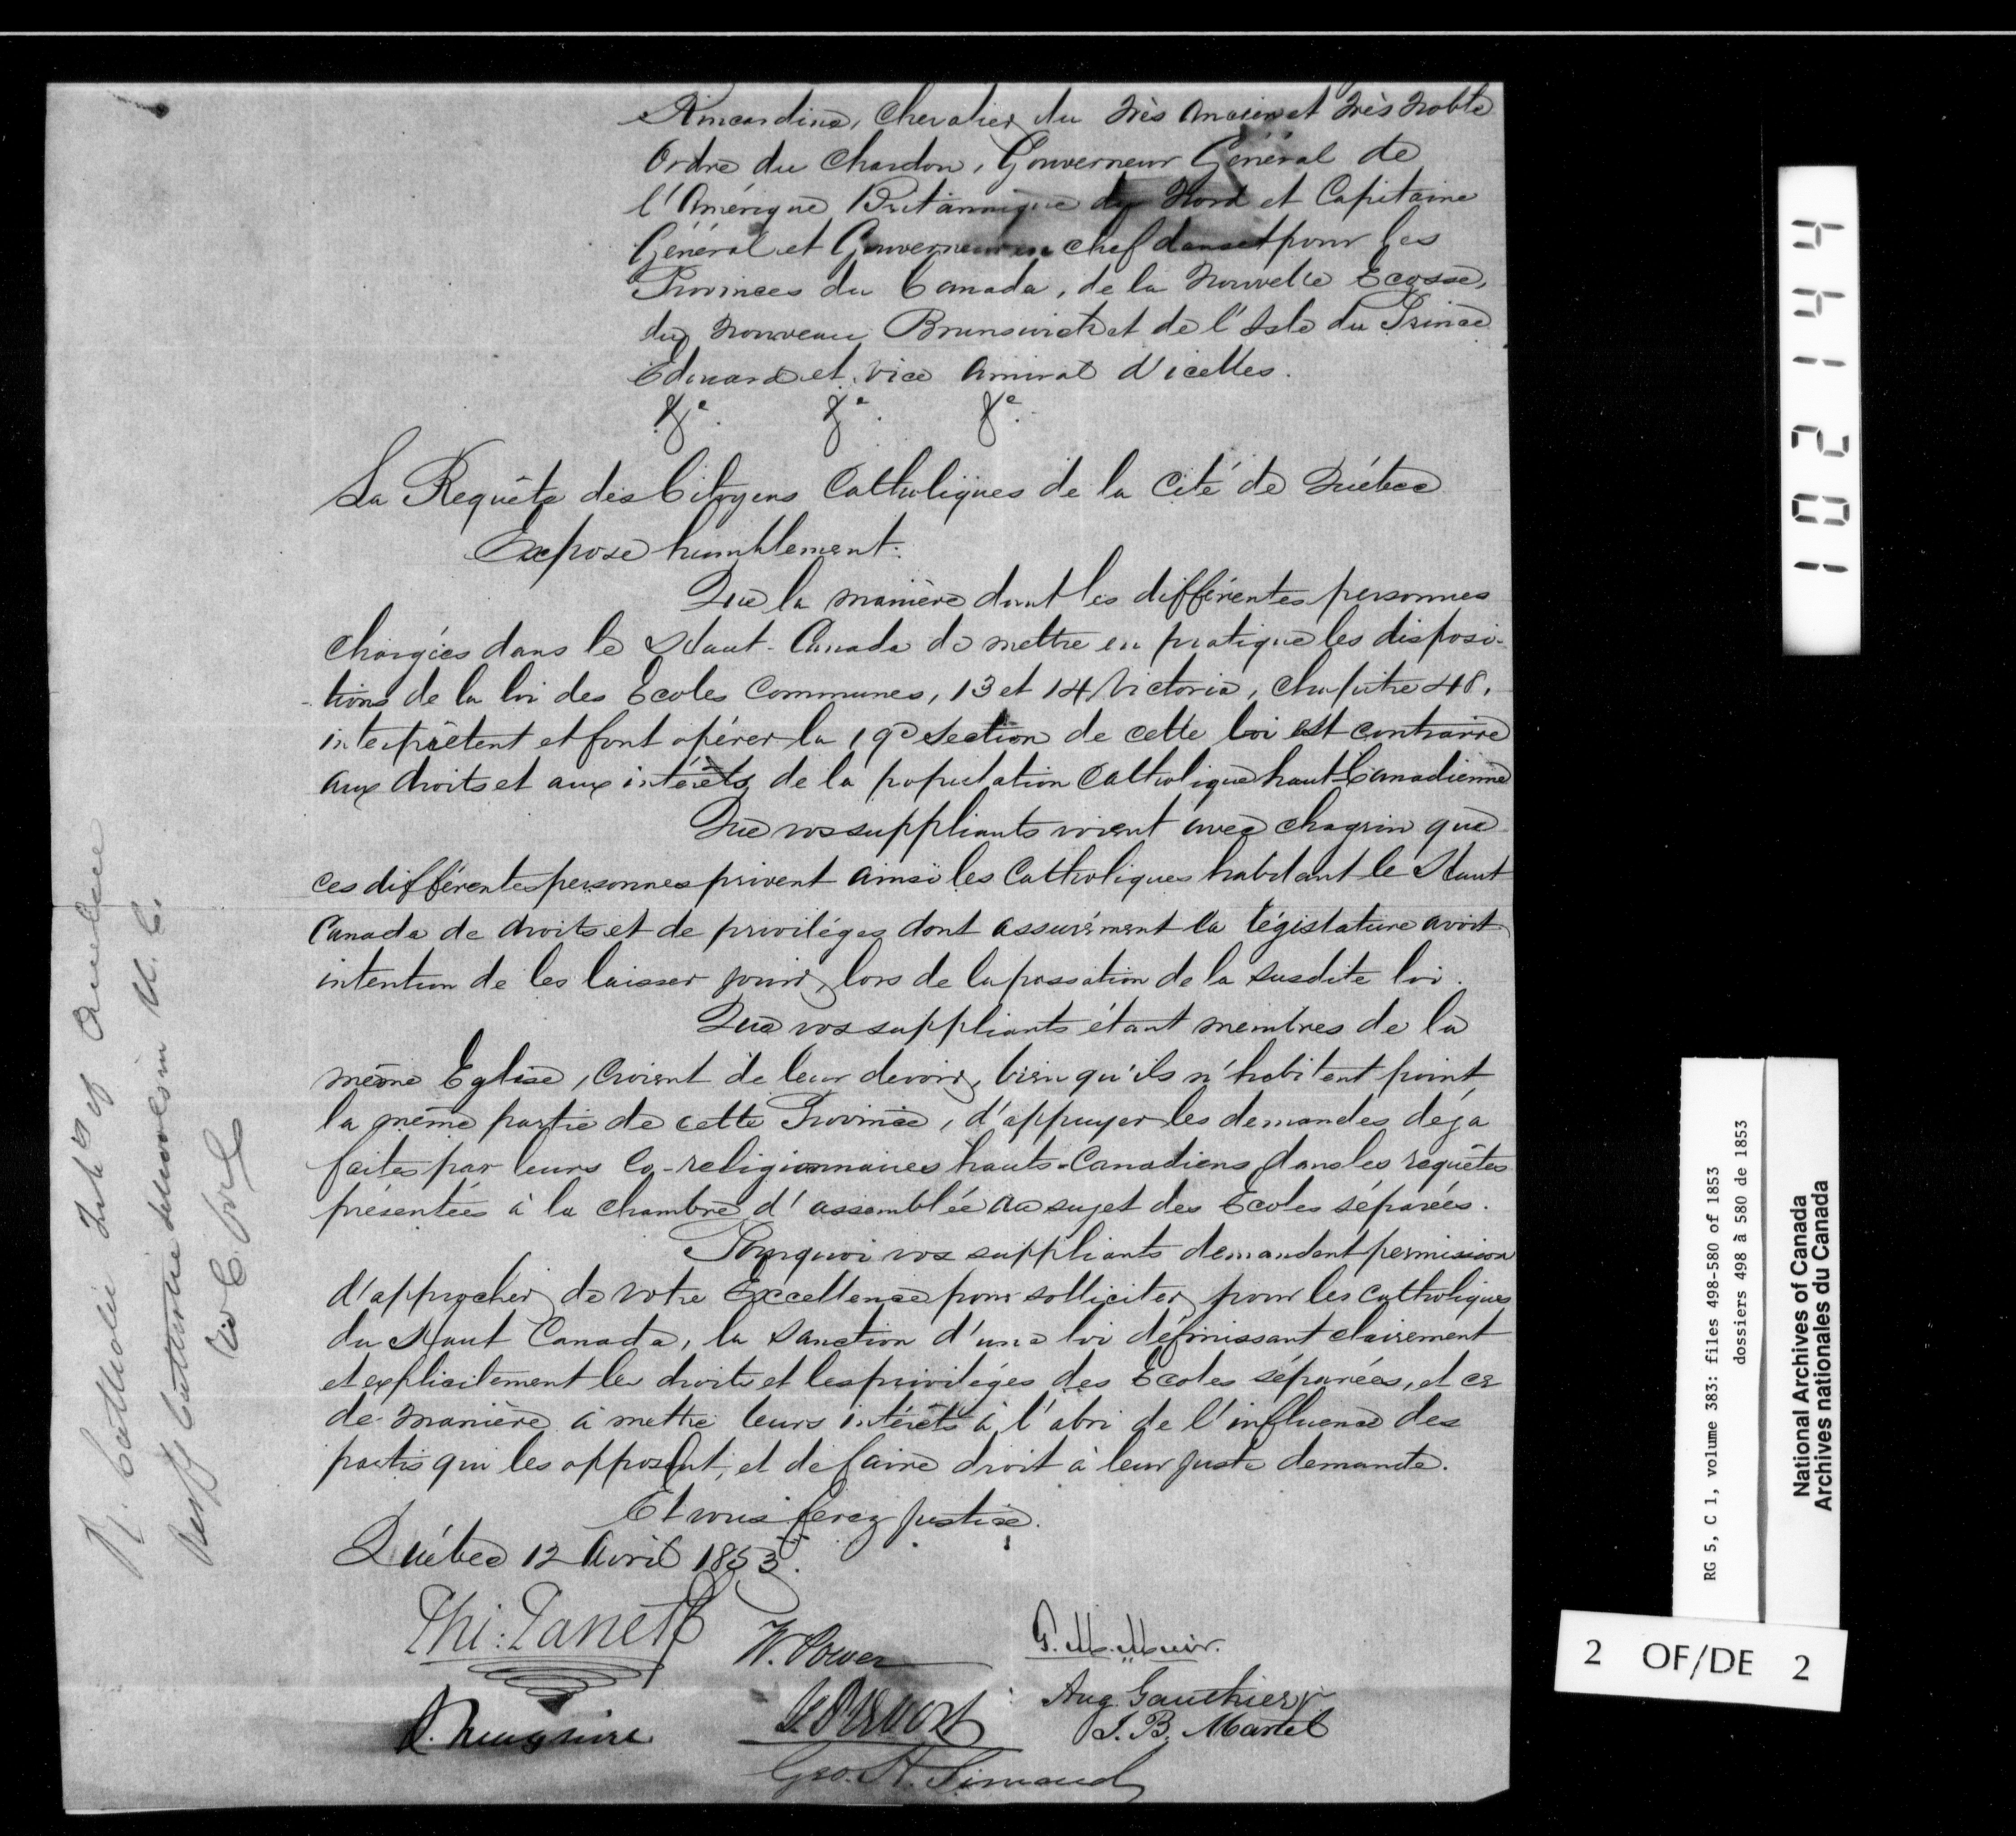 Kincardine, Chevalier du très Ancien et très Noble
Ordre du Chardon, Gouverneur Général de
l'Amérique Britannique du Nord et Capitaine
Général et Gouverneur en chef dans et pour les
Provinces du Canada, de la Nouvelle Ecosse,
du Nouveau Brunswick et de l'Isle du Prince
Edouard et vice Amiral d'icelles.
&c. &c. &c.
La Requête des Citoyens Catholiques de la Cité de Québec
Expose humblement:
Que la manière dont les différentes personnes
chargées dans le Haut-Canada de mettre en pratique les disposi-
-tions de la loi des Ecoles Communes, 13 et 14 Victoria, chapitre 48,
interprêtent et font opérer la 19e section de cette loi est contraire
aux droits et aux intérêts de la population Catholique haut-Canadienne
Que vos suppliants voient avec chagrin que
ces différentes personnes privent ainsi les Catholiques habitant le Haut
Canada de droits et de priviléges dont assurément la législature avoit
intention de les laisser jouir, lors de la passation de la susdite loi.
Que vos suppliants étant membres de la
même Eglise, croient de leur devoir, bien qu'ils n'habitent point
la même partie de cette Province, d'appuyer les demandes déja
faites par leurs Co-religionnaires hauts-Canadiens dans les requêtes
présentées à la chambre d'assemblée au sujet des Ecoles séparées.
Pourquoi vos suppliants demandent permission
d'approcher de votre Excellence pour solliciter, pour les catholiques
du Haut Canada, la sanction d'une loi définissant clairement
et explicitement les droits et les priviléges des Ecoles séparées, et ce
de manière à mettre leurs intérêts à l'abri de l'influence des
partis qui les opposent, et de faire droit à leur juste demande.
Et vous ferez justice.
Québec 12 Avril 1853.
Phi: Panet
W. Power
G. M. Muir.
Aug. Gauthier
J. B. Martel
Geo. H. Simard
R. Catholic Inhts of Quebec
Catholic schools in U. C.
102144
RG 5, C 1, volume 383: files 498-580 of 1853
dossiers 498 à 580 de 1853
National Archives of Canada
Archives nationales du Canada
2 OF/DE 2